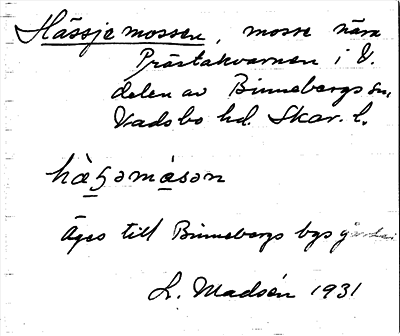 Hässjemossen, mosse nära
Prästakvarnen i V.
delen av Binnebergs sn,
Vadsbo hd. Skar. l.
hàʒəmá̱sən
Äges till Binnebergs bys
L. Madsén 1931